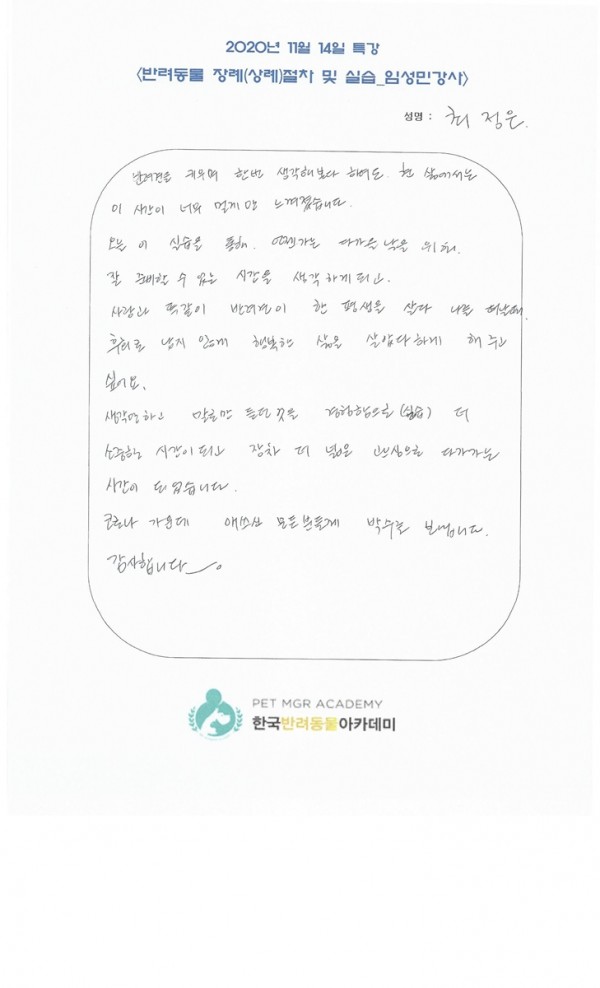 2020년 11월 14일 특강
<반려동물 장례(상례)절차 및 실습_임성민강사>
성명 : 최 정은
반려견을 키우며 한번 생각해본다 하여도 현 삶에서는
이 시간이 너무 멀게만 느껴졌습니다.
오늘 이 실습을 통해. 언젠가는 다가올 날을 위해.
잘 준비할 수 있는 시간을 생각하게되고.
사람과 똑같이 반려견이 한 평생을 살다 나를 떠날때.
후회로 남지 않게 행복한 삶을 살았다하게 해 주고
싶어요.
생각만하고 말로만 듣던것을 경험함으로(실습) 더
소중한 시간이되고 장차 더 넓은 관심으로 다가가는
시간이 되었습니다.
코로나 가운데 애쓰신 모든분들께 박수를 보냅니다.
감사합니다.
PET MGR ACADEMY
한국반려동물아카데미